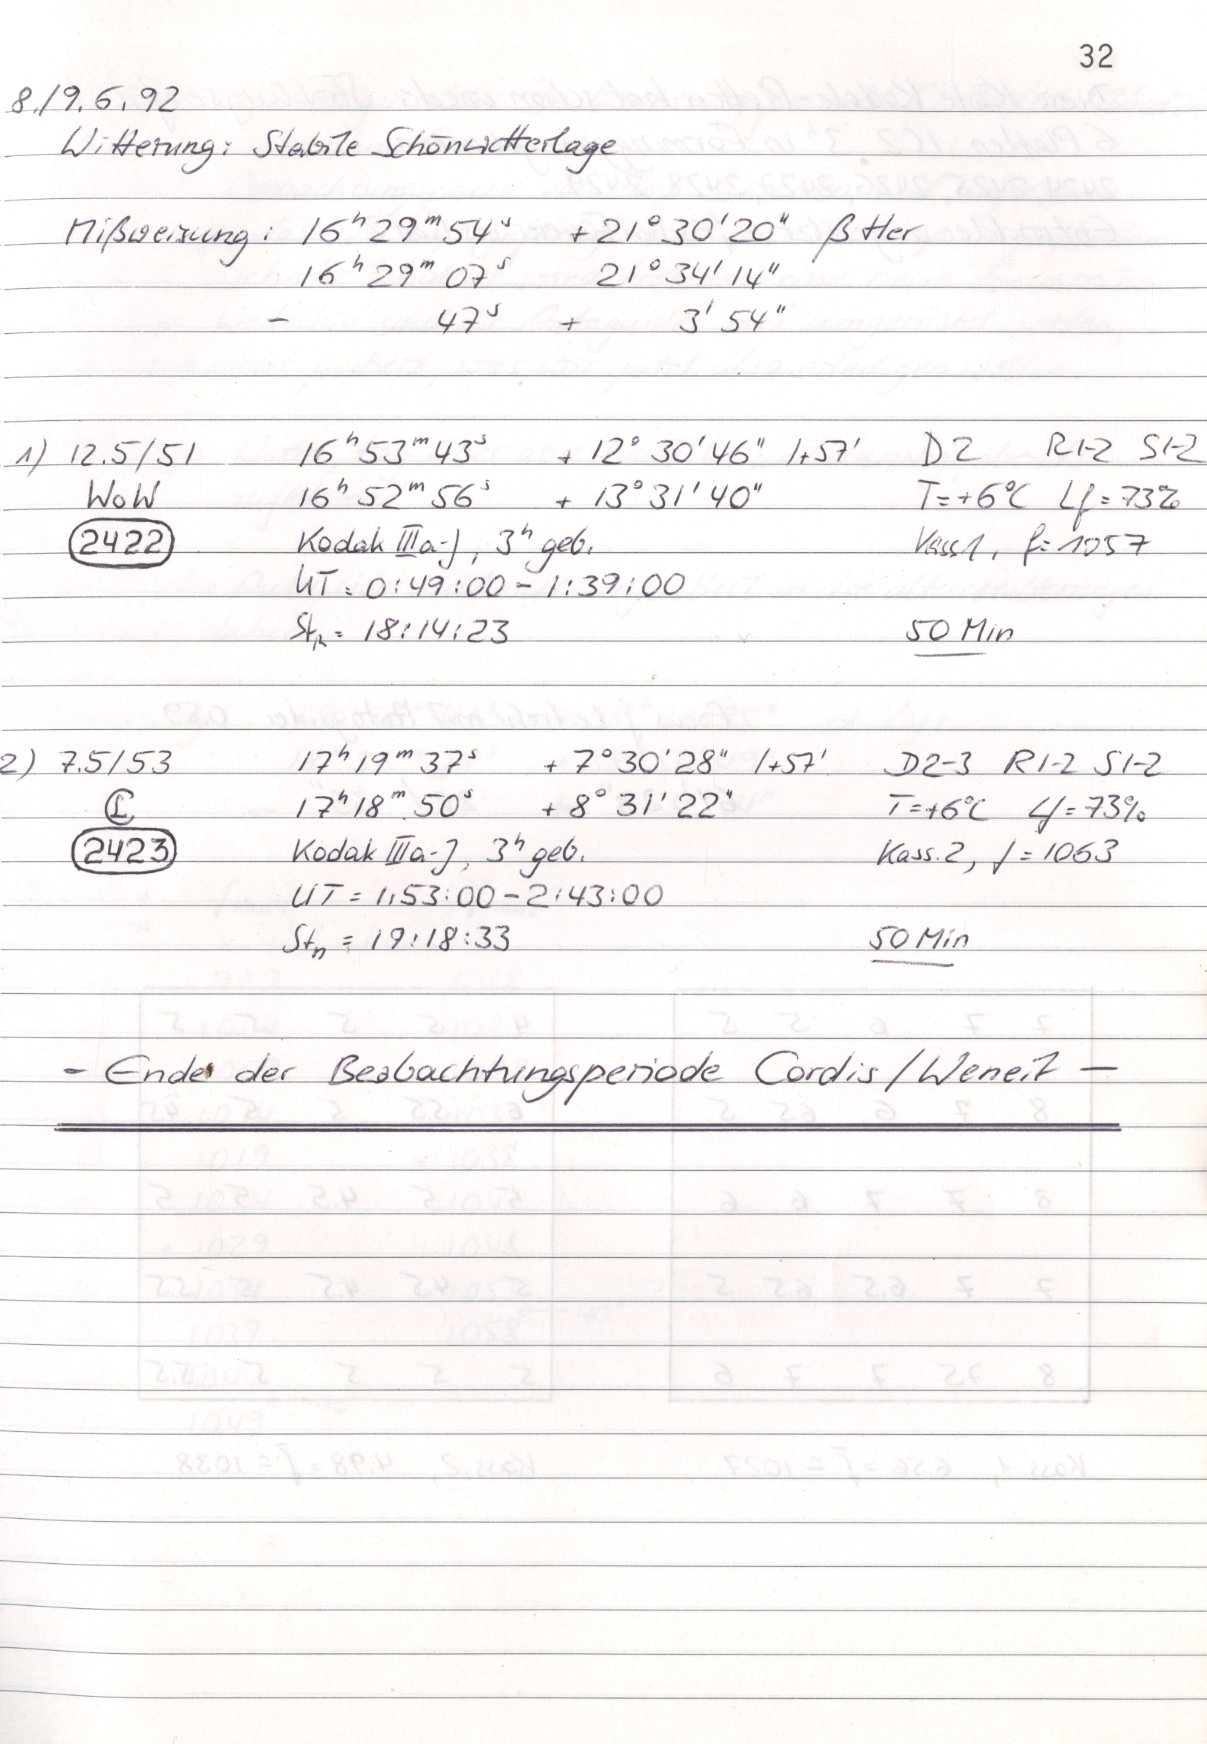 32
8./9.6.92
Witterung: Stabile Schönwetterlage
Mißweisung: 16ʰ29ᵐ54ˢ +21°30'20" β Her
16ʰ29ᵐ07ˢ 21°34'14"
- 47ˢ + 3'54"
1) 12.5/51 16ʰ53ᵐ43ˢ + 12°30'46" /+57' D2 R1-2 S1-2
WoW 16ʰ52ᵐ56ˢ + 13°31'40" T=+6°C Lf=73%
2422 Kodak IIIa-J, 3ʰ geb. Kass1, f=1057
UT = 0:49:00 - 1:39:00
Stₙ = 18:14:23 50 Min
2) 7.5/53 17ʰ19ᵐ37ˢ + 7°30'28" /+57' D2-3 R1-2 S1-2
17ʰ18ᵐ50ˢ + 8°31'22" T=+6°C Lf=73%
2423 Kodak IIIa-J, 3ʰ geb. Kass.2, f=1063
UT = 1:53:00 - 2:43:00
Stₙ = 19:18:33 50 Min
- Ende der Beobachtungsperiode Cordis/Weneit -